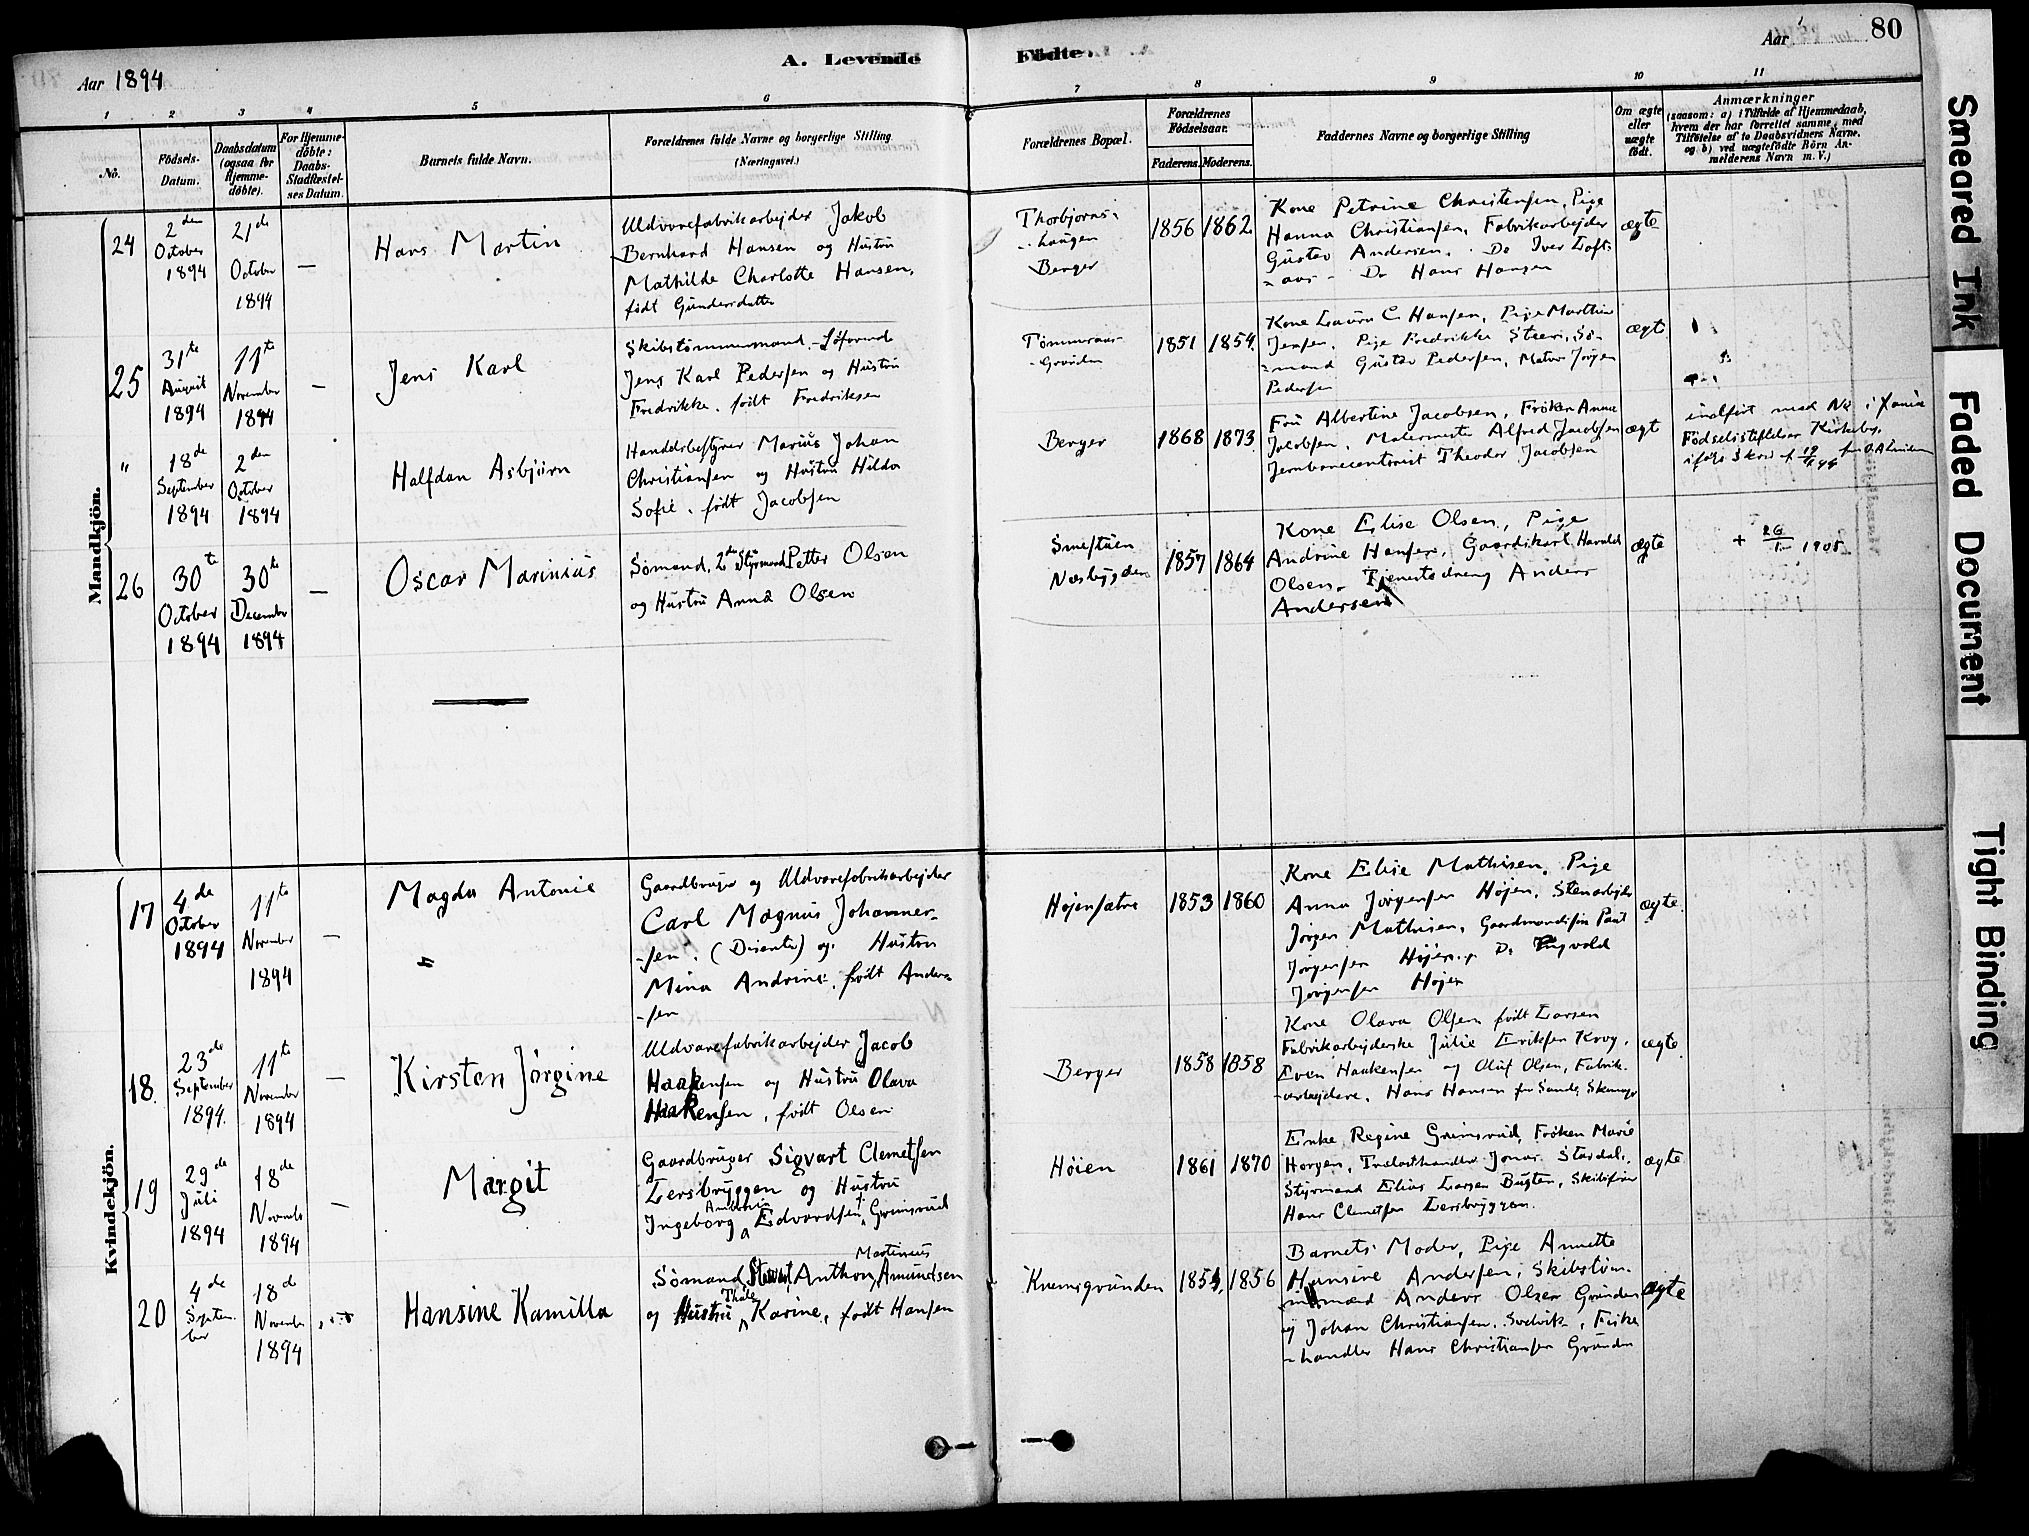 Aar 1894
A. Levende
Fødte.
Aar
80
1
2
3
4
5
6
7
8
9
10
11
No.
Fødsels-
Datum.
Daabsdatum
(ogsaa for
Hjemme-
døbte).
For Hjemme-
døbte:
Daabs-
Stadfæstel-
ses Datum.
Barnets fulde Navn.
Forældrenes fulde Navne og borgerlige Stilling
(Næringsvei.)
Forældrenes Bopæl.
Forældrenes
Fødselsaar.
Faderens.
Moderens.
Faddernes Navne og borgerlige Stilling
Om ægte
eller
uægte
født.
Anmærkninger
(saasom: a) i Tilfælde af Hjemmedaab,
hvem der har forrettet samme, med
Tilføielse af to Daabsvidners Navne.
og b) ved uægtefødte Børn An-
melderens Navn m. V.)
Mandkjön.
24
2den
October
1894
21de
October
1894
—
Hans Martin
Uldvarefabrikarbejder Jakob
Bernhard Hansen og Hustru
Mathilde Charlotte Hansen,
født Gundersdatter
Thorbjørns-
-haugen
Berger
1856
1862
Kone Petrine Christensen, Pige
Hanna Christiansen, Fabrikarbejder
Gustav Andersen. Do Iver Lofts-
-aas - Do Hans Hansen
ægte
25
31te
August
1894
11te
November
1894
—
Jens Karl
Skibstømmermand -
Jens Karl Pedersen og Hustru
Fredrikke, født Fredriksen
1851
1854
Kone Laura C. Hansen, Pige Marthine
Jensen, Pige Fredrikke Steen, Sø-
-mand Gustav Pedersen, Jørgen
Pedersen
ægte
"
18de
September
1894
2den
October
1894
Halfdan Asbjørn
Handelsbestyrer Marius Johan
Christiansen og Hustru Hilda
Sofie, født Jacobsen
Berger
1868
1873
Fru Albertine Jacobsen, Frøken Anna
Jacobsen, Malermester Alfred Jacobsen
Theodor Jacobsen
ægte
indført med No i
26
30te
October
1894
30te
December
1894
—
Oscar Marinius
Sømand, 2den Styrmand Petter Olsen
og Hustru Anna Olsen
Smestuen
Næsbygden
1857
1864
Kone Elise Olsen, Pige
Andrine Hansen, Gaardskarl Harald
Olsen, Tjenestedreng Anders
Andersen
ægte
+ 26 1905
Kvindekjön.
17
4de
October
1894
11te
November
1894
—
Magda Antonie
Gaardbruger og Uldvarefabrikarbejder
Carl Magnus Johannes-
-sen. (Dissenter) og Hustru
Mina Andrine, født Ander-
-sen
Højensætre
1853
1860
Kone Elise Mathisen, Pige
Anna Jørgensen Højen, Stenarbejder
Jørgen Mathisen, Gaardmandssøn Paul
Jørgensen Højen, Do Ingvald
Jørgensen Højen
ægte
18.
23de
September
1894.
11te
November
1894
—
Kirsten Jørgine
Uldvarefabrikarbejder Jacob
Haakensen og Hustru Olava
Haakensen, født Olsen
Berger
1858
1858
Kone Olava Olsen født Larsen
Fabrikarbejderske Julie Eriksen Krog,
Even Haakensen og Oluf Olsen, Fabrik-
-arbejdere, Hans Hansen fra Sande,
ægte
19
29de
Juli
1894
18de
1894
—
Margit
Gaardbruger Sigvart Clemetsen
Lersbryggen og Hustru
Ingeborg Andrine Edvardsen, Grimsrud
Høien
1861
1870
Enke Regine Grimsrud, Frøken Marie
Horgen, Trælasthandler Jonas Stardal,
Styrmand Elias Larsen Bugten,
Hans Clemetsen Lersbryggen.
ægte
20
4de
Septem-
ber
18de
November
1894
Hansine Kamilla
Martinius
Sømand, Stuert Anthon Amundsen
og Hustru Thale Karine, født Hansen
Knemsgrunden
1854
1856
Barnets Moder, Pige Annette
Hansine Andersen, Skibstøm-
-mermand Anders Olsen Grunden
og Johan Christiansen, Svelvik, Fiske-
-handler Hans Christiansen Grunden
ægte
Smeared Ink
Faded Document
Tight Binding